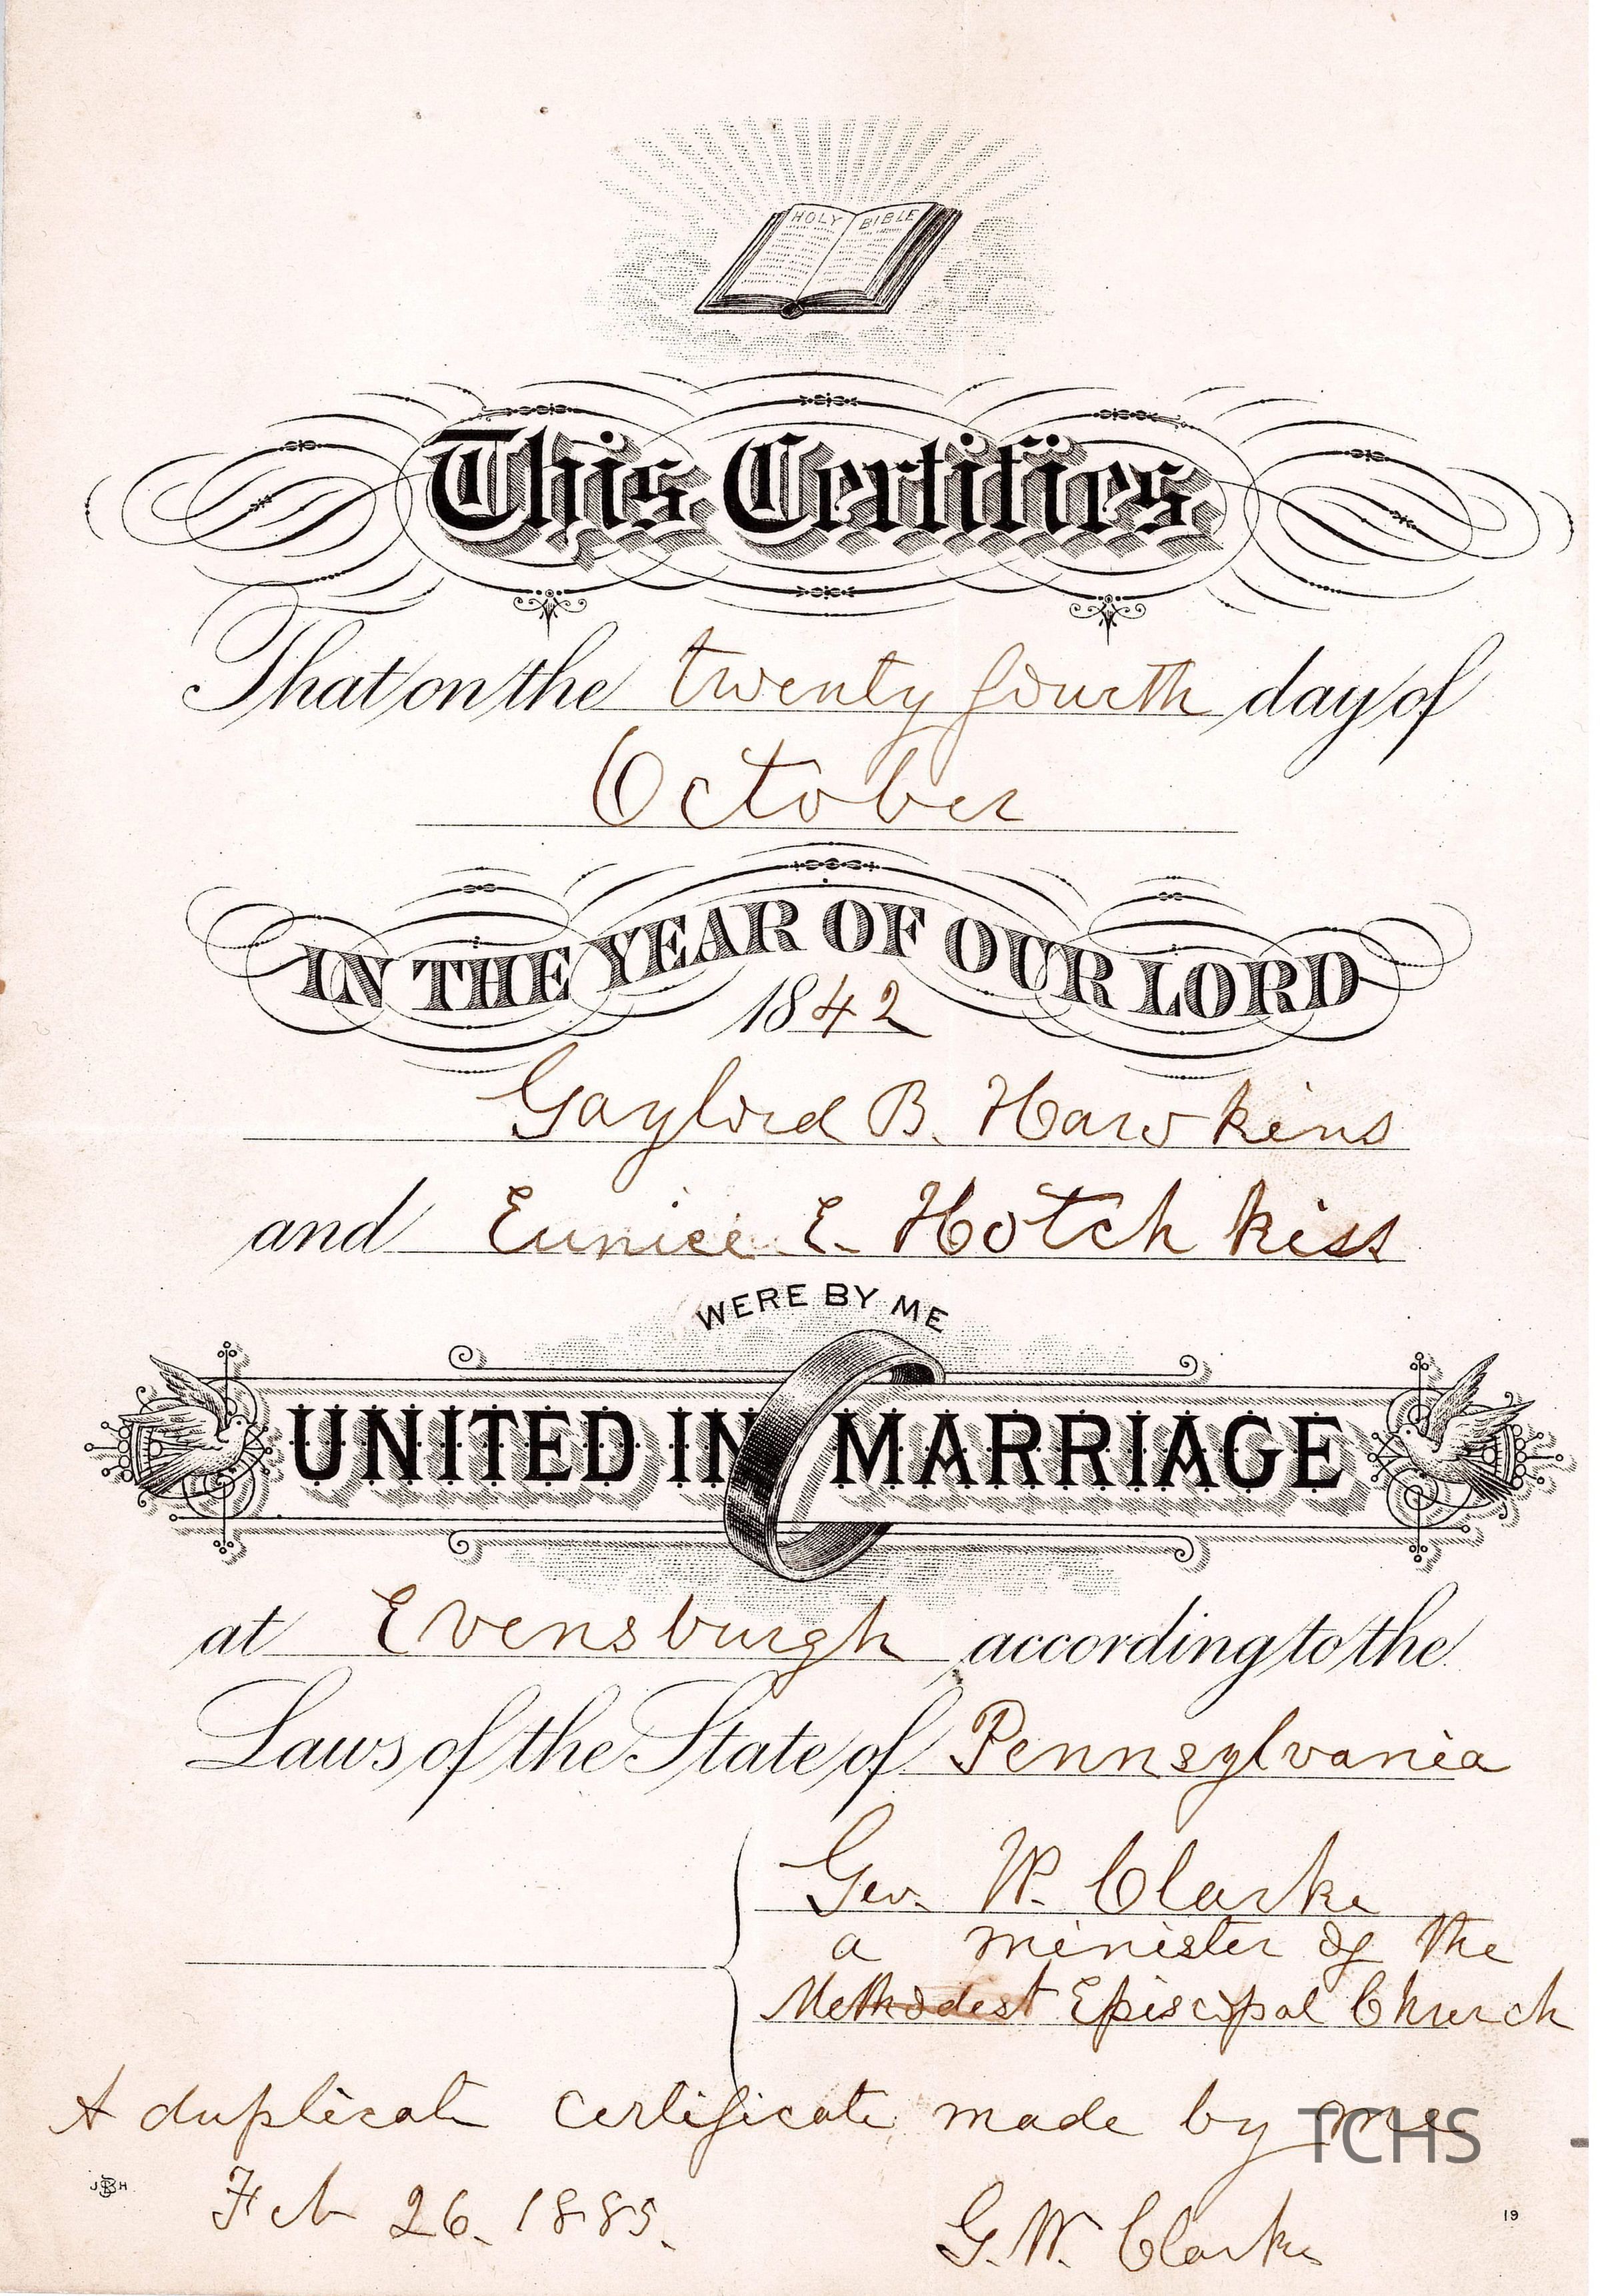 HOLY BIBLE
This Certifies
That on the twenty fourth day of
October
IN THE YEAR OF OUR LORD
1842
Gaylord B. Hawkins
and Eunice E. Hotchkiss
WERE BY ME
UNITED IN MARRIAGE
at Evensburgh according to the
Laws of the State of Pennsylvania
Geo. W. Clarke
a minister of the
Methodist Episcopal Church
A duplicate certificate made by me
TCHS
Feb 26. 1885.
G. W. Clarke
19